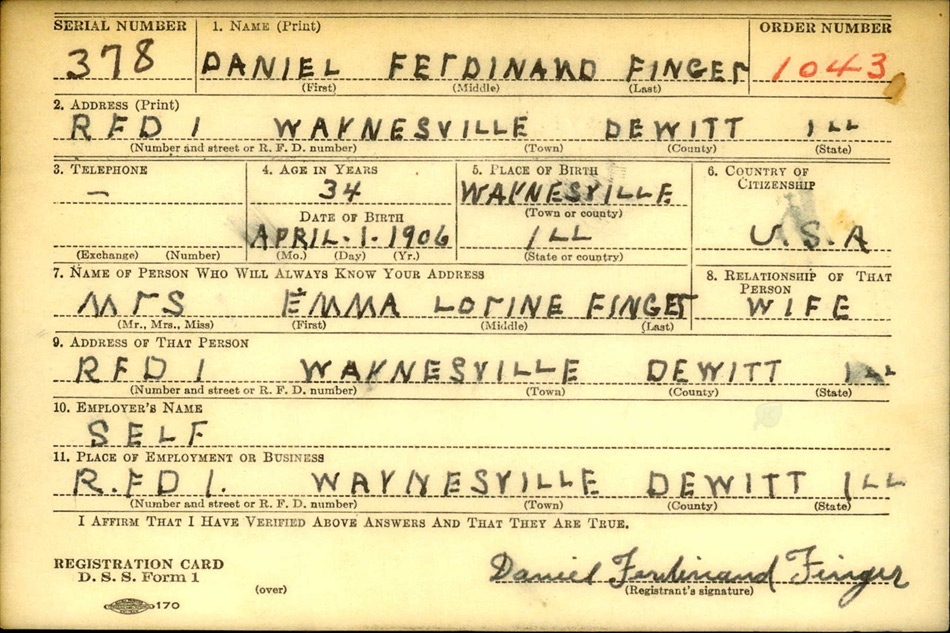 SERIAL NUMBER 1. NAME (Print) ORDER NUMBER
378 DANIEL FErDINAND FINGEr 1043
(First) (Middle) (Last)
2. ADDRESS (Print)
RFD 1 WAYNESVILLE DEWITT ILL
(Number and street or R. F. D. number) (Town) (County) (State)
3. TELEPHONE 4. AGE IN YEARS 5. PLACE OF BIRTH 6. COUNTRY OF CITIZENSHIP
— 34 WAYNESVILLE
(Town or county)
DATE OF BIRTH
APRIL. 1. 1906 ILL U.S.A
(Exchange) (Number) (Mo.) (Day) (Yr.) (State or country)
7. NAME OF PERSON WHO WILL ALWAYS KNOW YOUR ADDRESS 8. RELATIONSHIP OF THAT PERSON
MrS EMMA LOrINE FINGEr WIFE
(Mr., Mrs., Miss) (First) (Middle) (Last)
9. ADDRESS OF THAT PERSON
RFD 1 WAYNESVILLE DEWITT ILL
(Number and street or R. F. D. number) (Town) (County) (State)
10. EMPLOYER'S NAME
SELF
11. PLACE OF EMPLOYMENT OR BUSINESS
R.FD 1. WAYNESVILLE DEWITT ILL
(Number and street or R. F. D. number) (Town) (County) (State)
I AFFIRM THAT I HAVE VERIFIED ABOVE ANSWERS AND THAT THEY ARE TRUE.
REGISTRATION CARD
D. S. S. Form 1
(over)
Daniel Ferdinand Finger
(Registrant's signature)
170